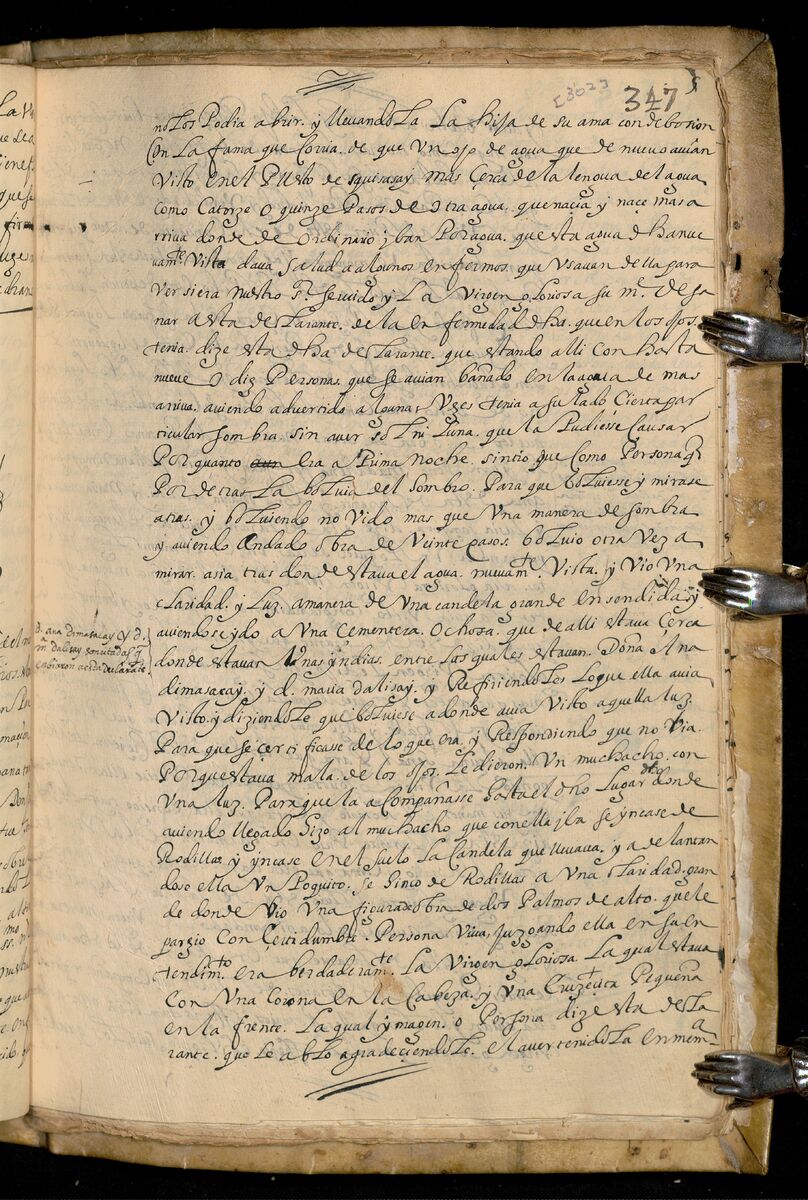 [302] 347
no los Podia abrir. y llevandola La hija de su ama con debosion
Con La fama que Corria. de que Un ojo de agua que de nuevo avian
Visto en el Puesto de squisasay mas Çerca de la lengua del agua
como Catorze o quinze Pasos de otra agua. que nacia y nace mas a
rriva donde de Ordinario iban Por agua. que esta agua dha nue
vamte Vista dava salud a algunos enfermos que Vsavan della para
Ver si era nuestro Sr. servido y La Virgen gloriosa su me. De sa
nar a esta declarante. de la enfermedad dha. que en los ojos.
tenia. dize esta dha declarante. que estando alli con hasta
nueve o diez Personas. que se avian bañado en la agua de mas
arriva. aviendo advertido algunas Vezes tenia a su lado Cierta par
ticular sombra, sin aver sol ni luna. que la Pudiesse Causar
Por quanto aun era a Prima noche. sintio que como Persona q
Por detras La bolvia del hombro. Para que bolviesse y mirase
atras. y bolviendo no vido mas que Una manera de sombra
y aviendo Andado obra de Veinte pasos. bolvio otra Vez a
mirar. asia tras donde estava el agua. nuevamte. Vista. y Vio Una
claridad. y Luz. a manera de Una candela grande ensendida y
aviendose ydo a Una Cementeza. o choza. que de alli estava Çerca
donde estavan Unas yndias. entre los quales estavan. Doña Ana
dimasacay. y d. maria dalisay. y Refiriendoles lo que ella avia
Visto. y diziendole que bolviese a donde avia Visto aquella luz.
Para que se çertificase de lo que era. y Respondiendo que no Via.
Porque estava mala. de los ojos. Le dieron. Un muchacho. con
Una luz. Para que la acompañasse hasta el dho Lugar donde
aviendo llegado hizo al muchacho que con ella iba se yncase de
Rodillas y yncase en el suelo La Candela que llevava, y adelantan
dose ella Un Poquito. se hinco de Rodillas a Una claridad. gran
de donde Vio Una figura de obra de dos Palmos de alto. que le
pareçio con Çertidumbre. Persona Viva, juzgando ella en su en
tendimto. era berdaderamte. La Virgen gloriosa. La qual estava
Con Una Corona en la Cabeza. y Una Cruzecita Pequeña
en la frente. La qual ymagen. o Persona dize esta decla
rante. que le ablo agradeçiendole. el aver tenidola en mema
d. ana dimasacay y d.
ma dalisay son citadas q